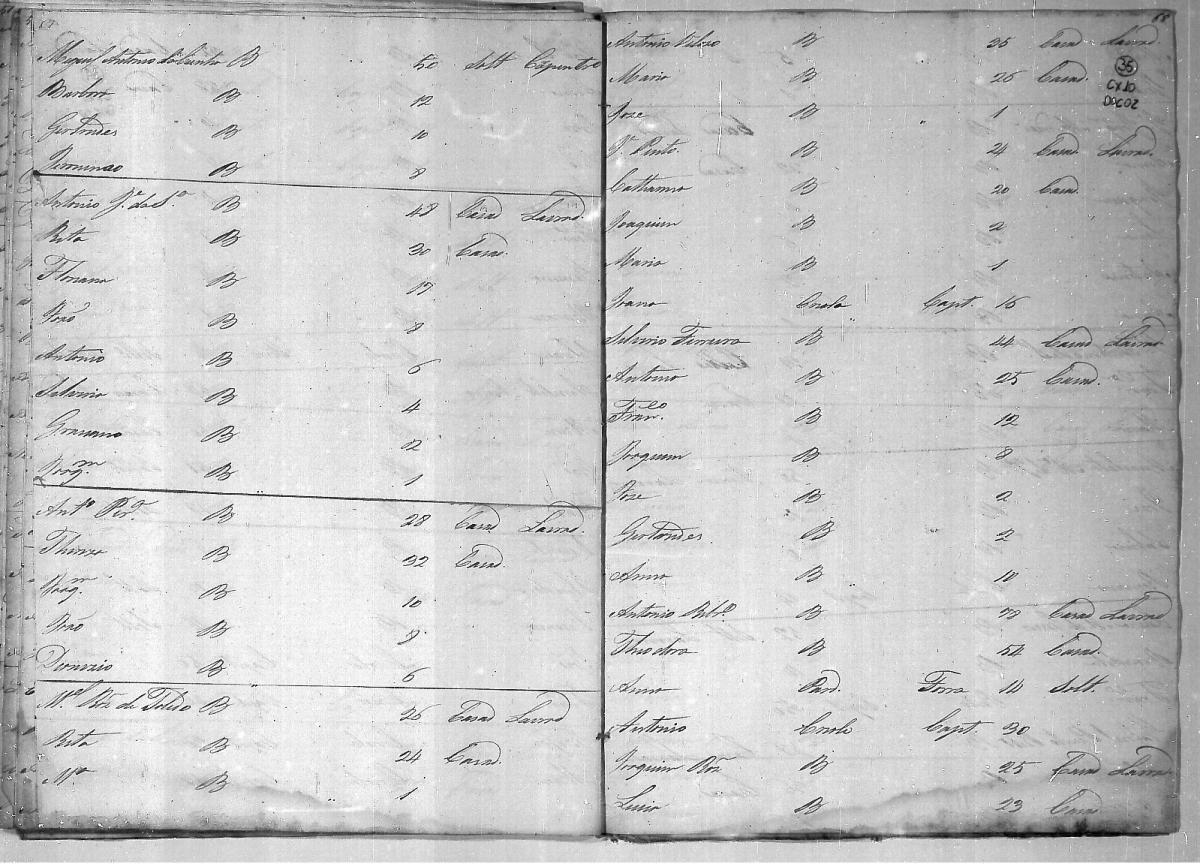 67
Miguel Antonio da Cunha B 50 Solt Carpintro
Barbora B 12
Gertrudes B 10
Firminao B 8
Antonio Je. da Sa. B 48 Casad Lavrad.
Rita B 30 Casad.
Floriana B 17
João B 8
Antonio B 6
Salvino B 4
Graciano B 2
Joaqm. B 1
Anto. Pera. B 28 Casad Lavrad.
Thereza B 32 Casad.
Joaqm. B 10
João B 8
Dionizio B 6
Mel. Roiz de Toledo B 26 Casad Lavrad
Rita B 24 Casad.
Ma B 1
68
35
CX10
DOC02
Antonio Velozo B 35 Casad Lavrad.
Maria B 26 Casad.
Joze B 1
Je. Pinto. B 24 Casad Lavrad.
Catharina B 20 Casad.
Joaquim B 2
Maria B 1
Joana Criola Capt. 16
Silverio Ferreira B 44 Casad Lavrad
Antonia B 25 Casad.
Franco. B 12
Joaquim B 8
Joze B 2
Gertrudes. B 2
Anna B 10
Antonio Ribro. B 70 Casad Lavrad
Thiodora B 54 Casad.
Anna Pard. Forra 14 Solt.
Antonio Criolo Capt. 30
Joaquim Roiz B 25 Casad Lavrad
Luzia B 23 Casad